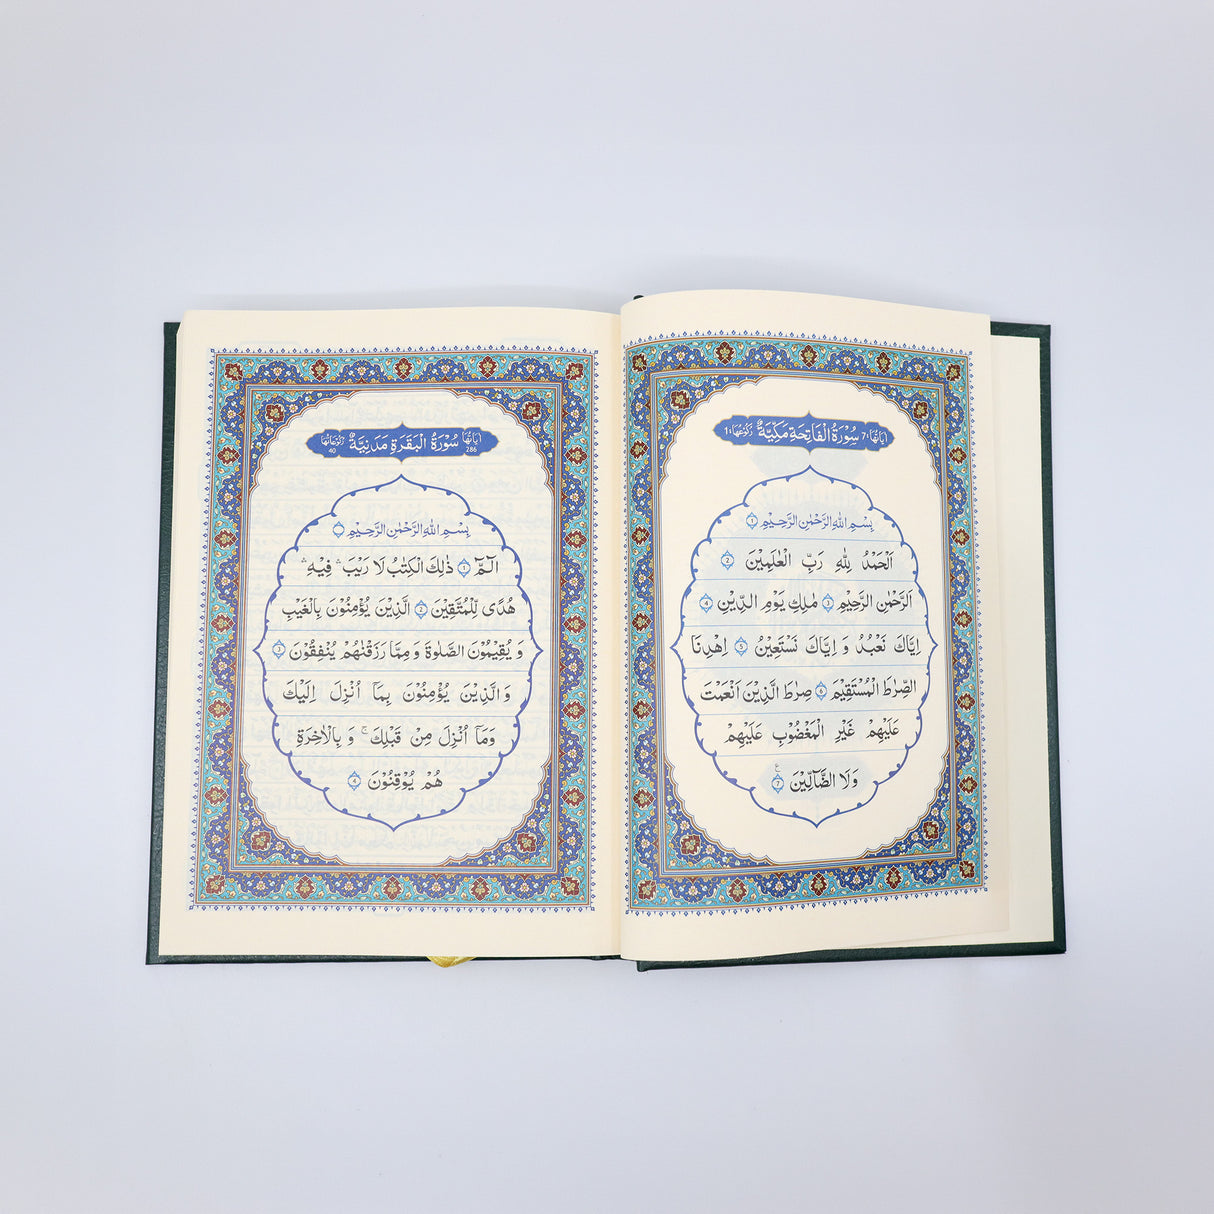 سُوْرَةُ الْفَاتِحَةِ مَكِّيَّةٌ
اٰيَاتُهَا: 7
رُكُوْعُهَا: 1
بِسْمِ اللّٰهِ الرَّحْمٰنِ الرَّحِيْمِ 1
اَلْحَمْدُ لِلّٰهِ رَبِّ الْعٰلَمِيْنَ 2
الرَّحْمٰنِ الرَّحِيْمِ 3 مٰلِكِ يَوْمِ الدِّيْنِ 4
اِيَّاكَ نَعْبُدُ وَ اِيَّاكَ نَسْتَعِيْنُ 5 اِهْدِنَا
الصِّرَاطَ الْمُسْتَقِيْمَ 6 صِرَاطَ الَّذِيْنَ اَنْعَمْتَ
عَلَيْهِمْ غَيْرِ الْمَغْضُوْبِ عَلَيْهِمْ
وَلَا الضَّآلِّيْنَ 7 ع
سُوْرَةُ الْبَقَرَةِ مَدَنِيَّةٌ
اٰيَاتُهَا 286
رُكُوْعَاتُهَا 40
بِسْمِ اللّٰهِ الرَّحْمٰنِ الرَّحِيْمِ
الٓمّٓ 1 ذٰلِكَ الْكِتٰبُ لَا رَيْبَ ۛ فِيْهِ ۛ
هُدًى لِّلْمُتَّقِيْنَ 2 الَّذِيْنَ يُؤْمِنُوْنَ بِالْغَيْبِ
وَ يُقِيْمُوْنَ الصَّلٰوةَ وَ مِمَّا رَزَقْنٰهُمْ يُنْفِقُوْنَ 3
وَ الَّذِيْنَ يُؤْمِنُوْنَ بِمَآ اُنْزِلَ اِلَيْكَ
وَمَآ اُنْزِلَ مِنْ قَبْلِكَ ۚ وَ بِالْاٰخِرَةِ
هُمْ يُوْقِنُوْنَ 4